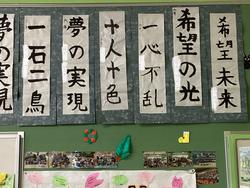 希望未来
希望の光
一心不乱
十人十色
夢の実現
一石二鳥
夢の実現